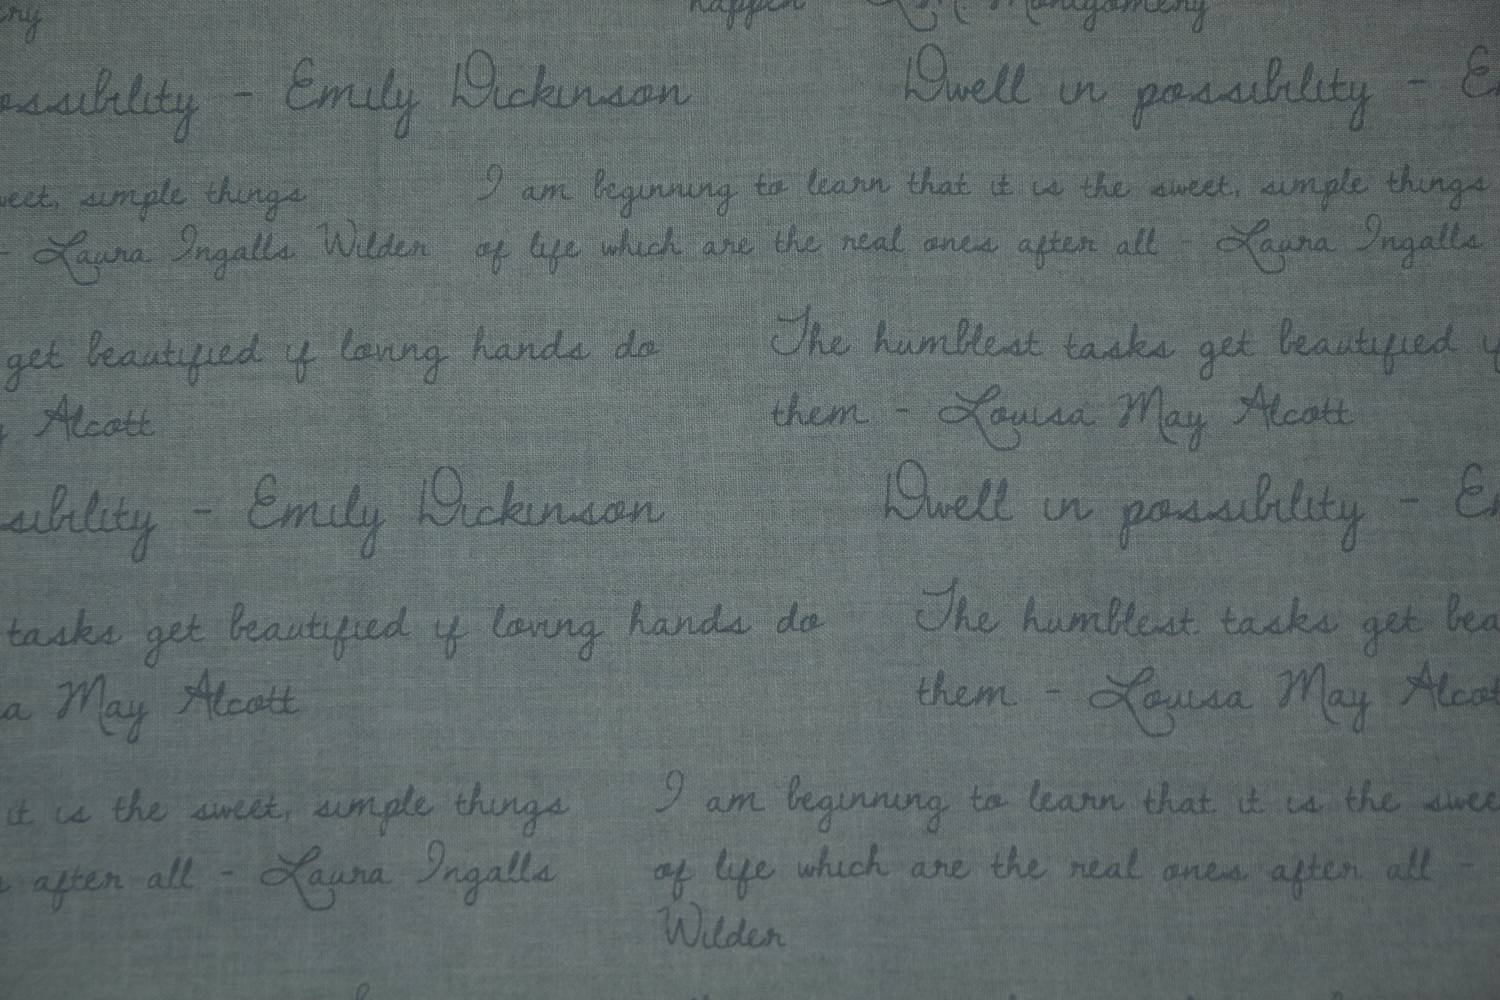 happen L.M. Montgomery
Emily Dickinson Dwell in possibility -
simple things I am beginning to learn that it is the sweet, simple things
- Laura Ingalls Wilder of life which are the real ones after all - Laura Ingalls
get beautified if loving hands do The humblest tasks get beautified
Alcott them - Louisa May Alcott
- Emily Dickinson Dwell in possibility -
tasks get beautified if loving hands do The humblest tasks get
May Alcott them - Louisa May
it is the sweet, simple things I am beginning to learn that it is the
after all - Laura Ingalls of life which are the real ones after all -
Wilder